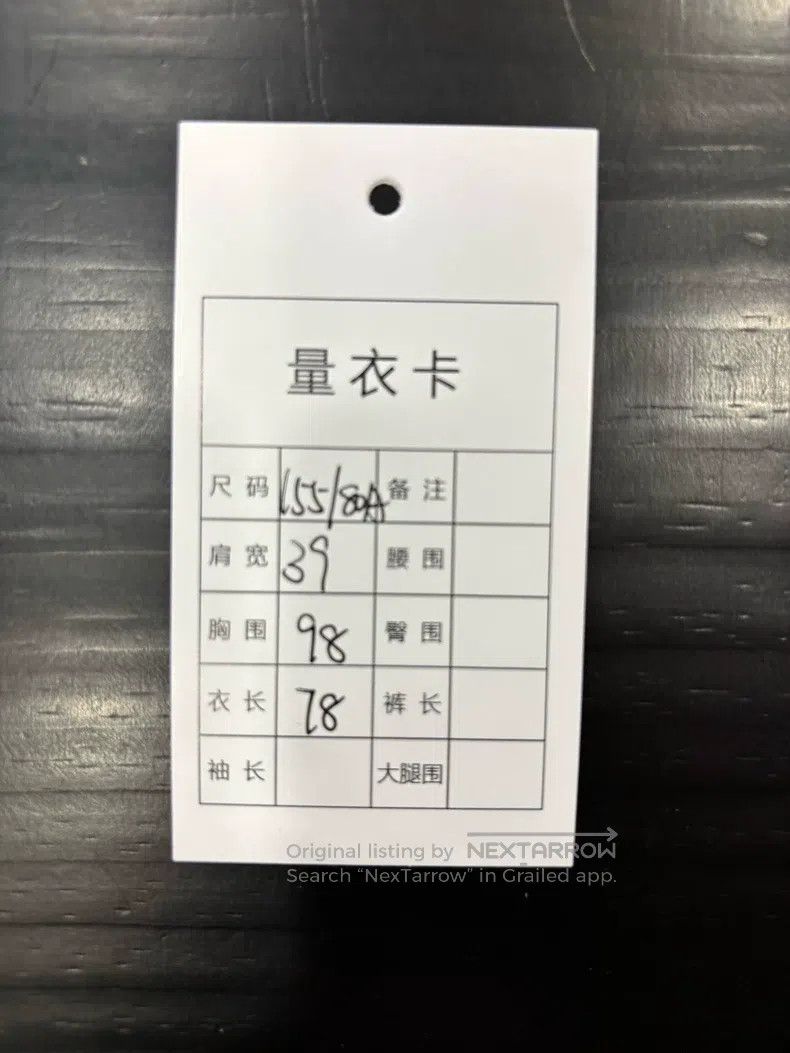 量衣卡
尺码 155/80A 备注
肩宽 39 腰围
胸围 98 臀围
衣长 78 裤长
袖长 大腿围
Original listing by NEXTARROW
Search “NexTarrow” in Grailed app.